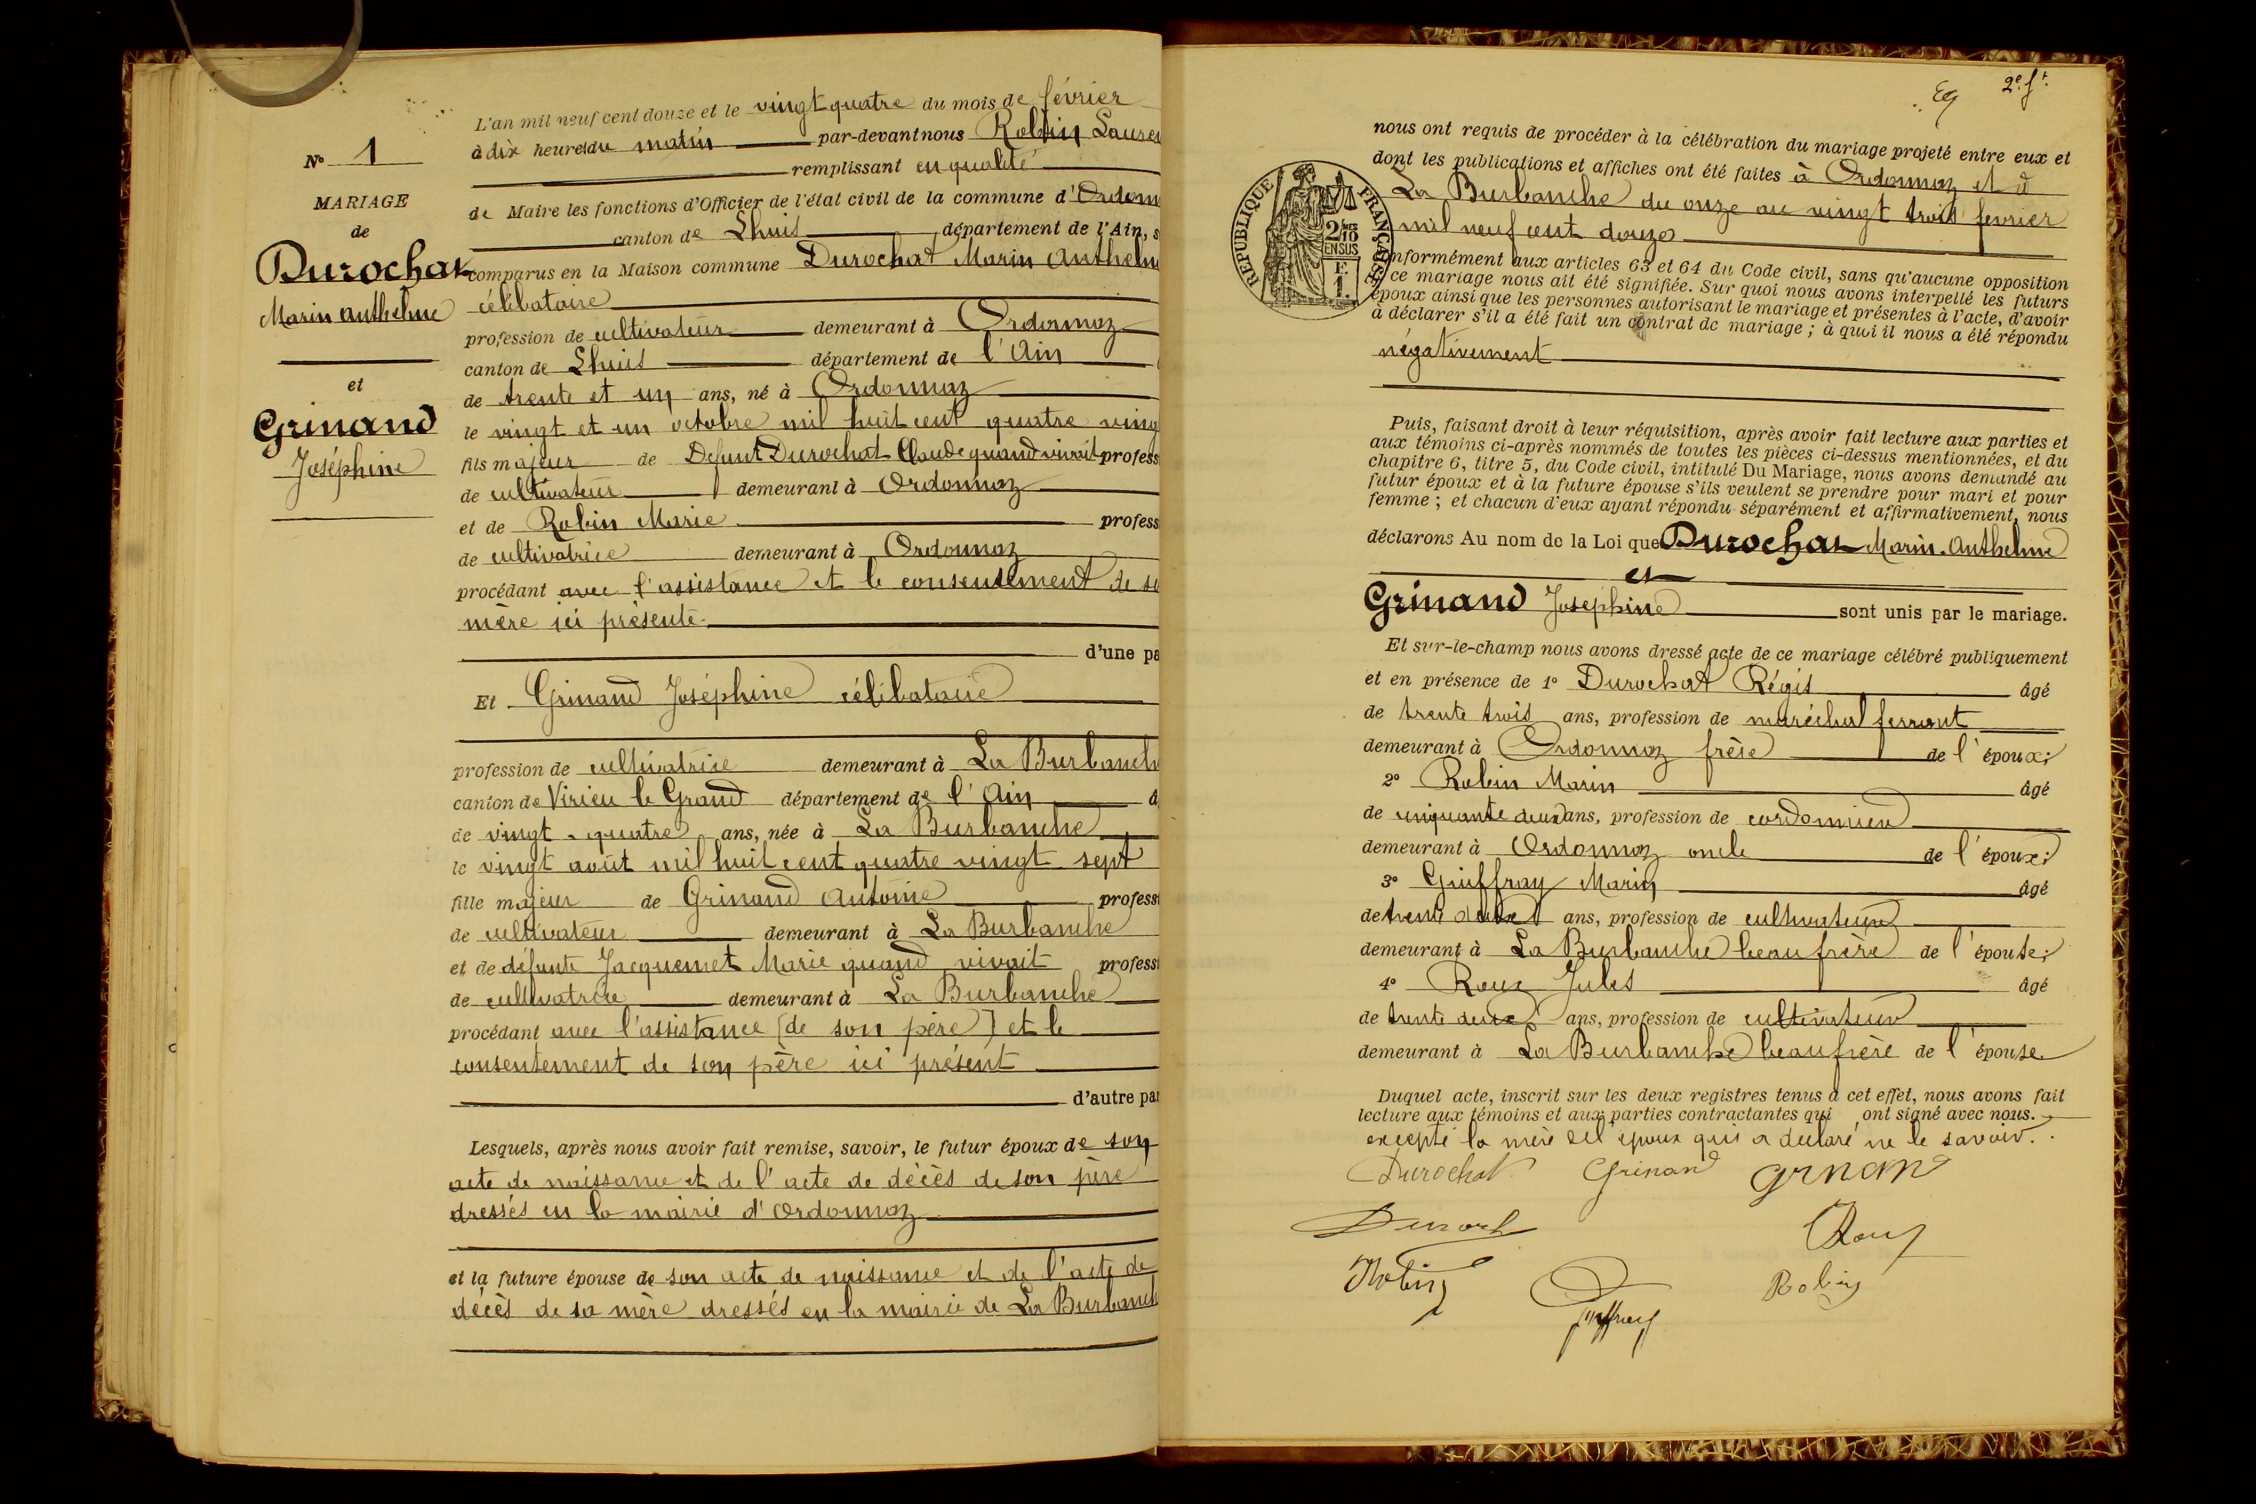 N° 1
MARIAGE
de
Durochat
Marin Anthelme
et
Grinand
Joséphine
L'an mil neuf cent douze et le vingt quatre du mois de février
à dix heures du matin par-devant nous Robin Lauren
remplissant en qualité
de Maire les fonctions d'Officier de l'état civil de la commune d'Ordonn
canton de Lhuis département de l'Ain, s
comparus en la Maison commune Durochat Marin Anthelm
célibataire
profession de cultivateur demeurant à Ordonnaz
canton de Lhuis département de l'Ain
de trente et un ans, né à Ordonnaz
le vingt et un octobre mil huit cent quatre ving
fils majeur de Defunt Durochat Claude quand vivait profess
de cultivateur demeurant à Ordonnaz
et de Robin Marie profess
de cultivatrice demeurant à Ordonnaz
procédant avec l'assistance et le consentement de sa
mère ici présente
d'une pa
Et Grinand Joséphine célibataire
profession de cultivatrice demeurant à La Burbanch
canton de Virieu le Grand département de l'Ain â
de vingt-quatre ans, née à La Burbanche
le vingt août mil huit cent quatre vingt sept
fille majeur de Grinand Antoine professi
de cultivateur demeurant à La Burbanche
et de défunte Jacquemet Marie quand vivait professi
de cultivatrice demeurant à La Burbanche
procédant avec l'assistance [de son père] et le
consentement de son père ici présent
d'autre par
Lesquels, après nous avoir fait remise, savoir, le futur époux de son
acte de naissance et de l'acte de décès de son père
dressés en la mairie d'Ordonnaz
et la future épouse de son acte de naissance et de l'acte de
décès de sa mère dressés en la mairie de La Burbanch
2e ft
nous ont requis de procéder à la célébration du mariage projeté entre eux et
dont les publications et affiches ont été faites à Ordonnaz et à
La Burbanche du onze au vingt trois février
mil neuf cent douze
RÉPUBLIQUE FRANÇAISE
2/10
EN SUS
F.
1.
onformément aux articles 63 et 64 du Code civil, sans qu'aucune opposition
ce mariage nous ait été signifiée. Sur quoi nous avons interpellé les futurs
époux ainsi que les personnes autorisant le mariage et présentes à l'acte, d'avoir
à déclarer s'il a été fait un contrat de mariage ; à quoi il nous a été répondu
négativement
Puis, faisant droit à leur réquisition, après avoir fait lecture aux parties et
aux témoins ci-après nommés de toutes les pièces ci-dessus mentionnées, et du
chapitre 6, titre 5, du Code civil, intitulé Du Mariage, nous avons demandé au
futur époux et à la future épouse s'ils veulent se prendre pour mari et pour
femme ; et chacun d'eux ayant répondu séparément et affirmativement, nous
déclarons Au nom de la Loi que Durochat Marin-Anthelme
et
Grinand Joséphine sont unis par le mariage.
Et sur-le-champ nous avons dressé acte de ce mariage célébré publiquement
et en présence de 1° Durochat Régis âgé
de trente trois ans, profession de maréchal ferrant
demeurant à Ordonnaz frère de l'époux;
2° Robin Marin âgé
de cinquante deux ans, profession de cordonnier
demeurant à Ordonnaz oncle de l'époux;
3° Guiffray Marin âgé
de trente deux ans, profession de cultivateur
demeurant à La Burbanche beau frère de l'épouse;
4° Roux Jules âgé
de trente deux ans, profession de cultivateur
demeurant à La Burbanche beau frère de l'épouse
Duquel acte, inscrit sur les deux registres tenus à cet effet, nous avons fait
lecture aux témoins et aux parties contractantes qui ont signé avec nous.
excepté la mère de l'époux qui a déclaré ne le savoir.
Durochat Grinand Grnand
Roux
Robin Robin